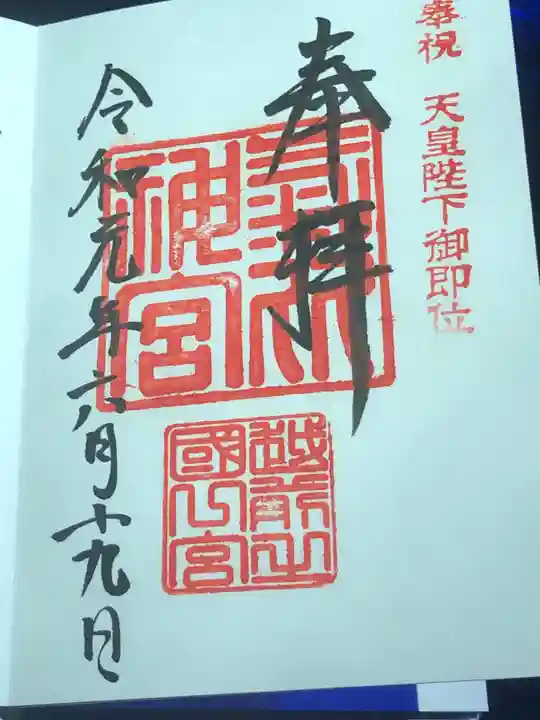 奉祝 天皇陛下御即位
奉拝
氣比神宮
越前之國一宮
令和元年六月十九日